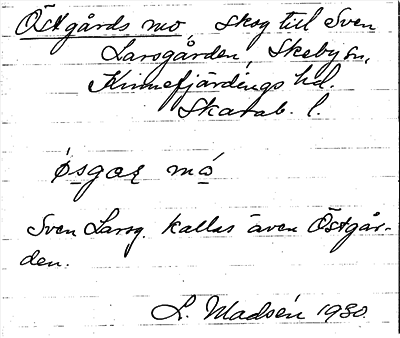 Östgårds mo, skog till Sven
Larsgården, Skeby sn,
Kinnefjärdings hd.
Skarab. l.
ø̀sgaʀ mó
Sven Larsg. kallas även Östgår-
den.
L. Madsén 1930.